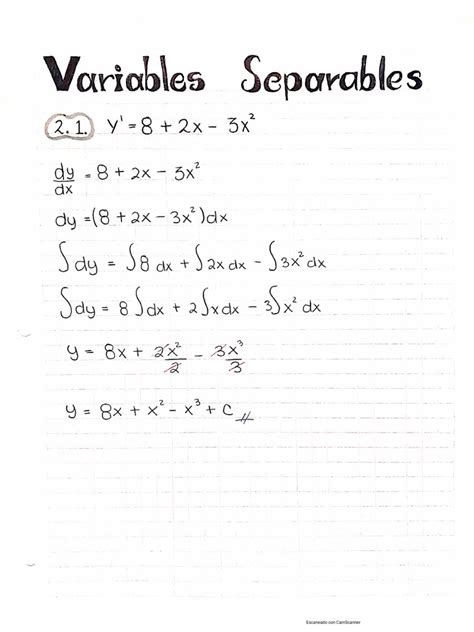 Variables Separables
2.1. y' = 8 + 2x - 3x²
dy/dx = 8 + 2x - 3x²
dy = (8 + 2x - 3x²)dx
∫dy = ∫8 dx + ∫2x dx - ∫3x² dx
∫dy = 8∫dx + 2∫xdx - 3∫x² dx
y = 8x + 2x²/2 - 3x³/3
y = 8x + x² - x³ + C //
Escaneado con CamScanner